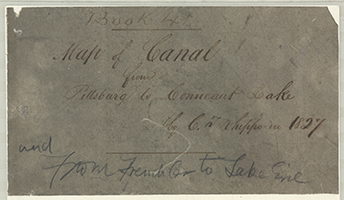 Book 4
Map of Canal
from
Pittsburg to Conneaut Lake
by C. T. Whippo in 1827
and
From French Cr to Lake Erie